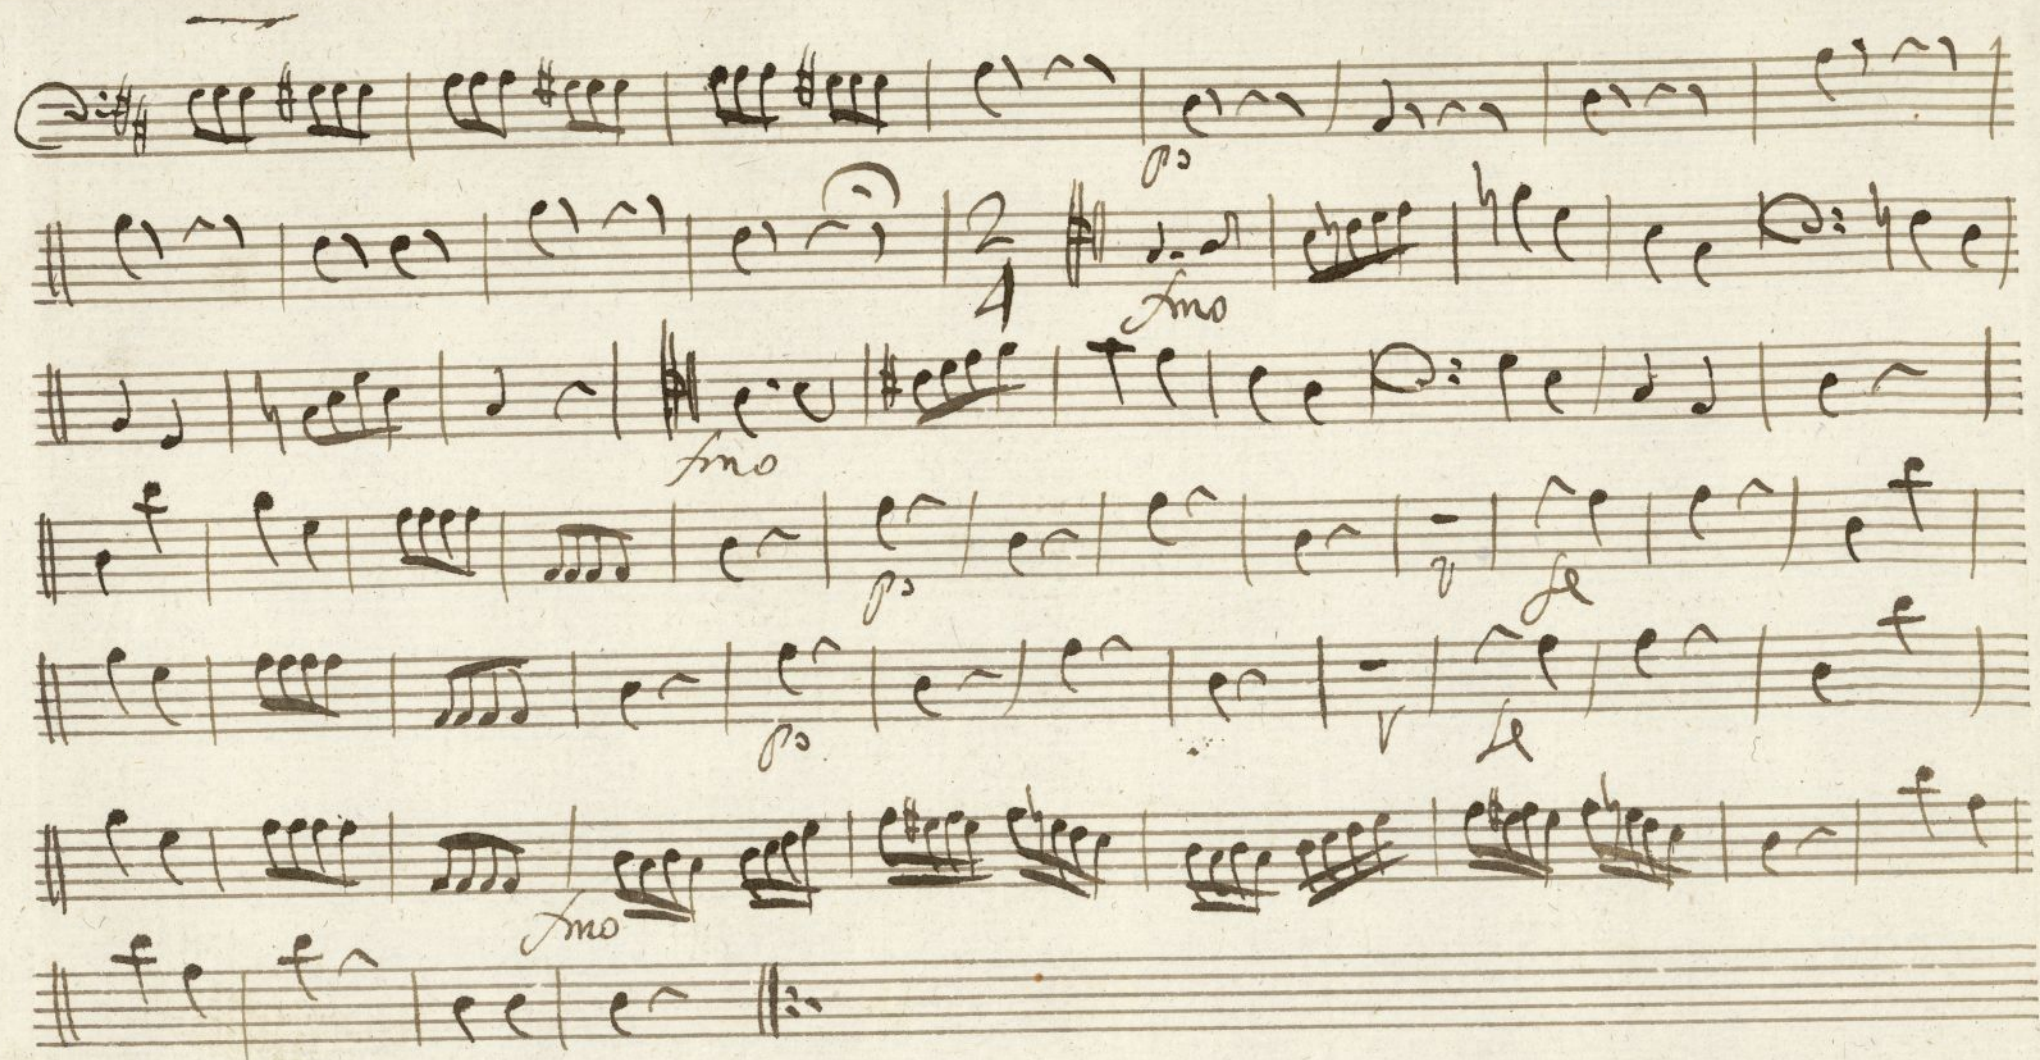 po
2
4
fmo
fmo
po
v
fe
po
V
fe
fmo